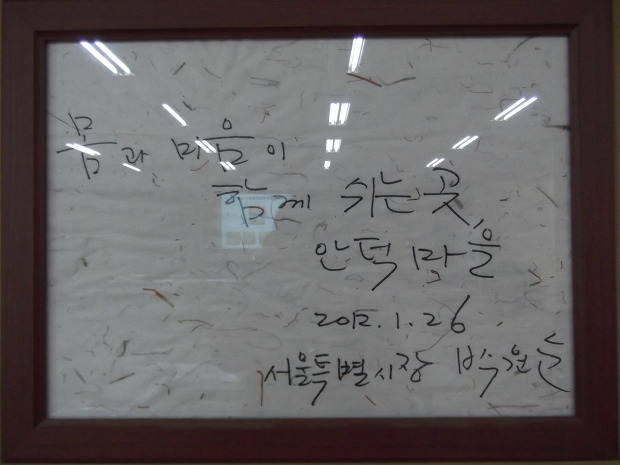 몸과 마음이
함께 쉬는 곳,
안덕마을
2012. 1. 26
서울특별시장 박원순